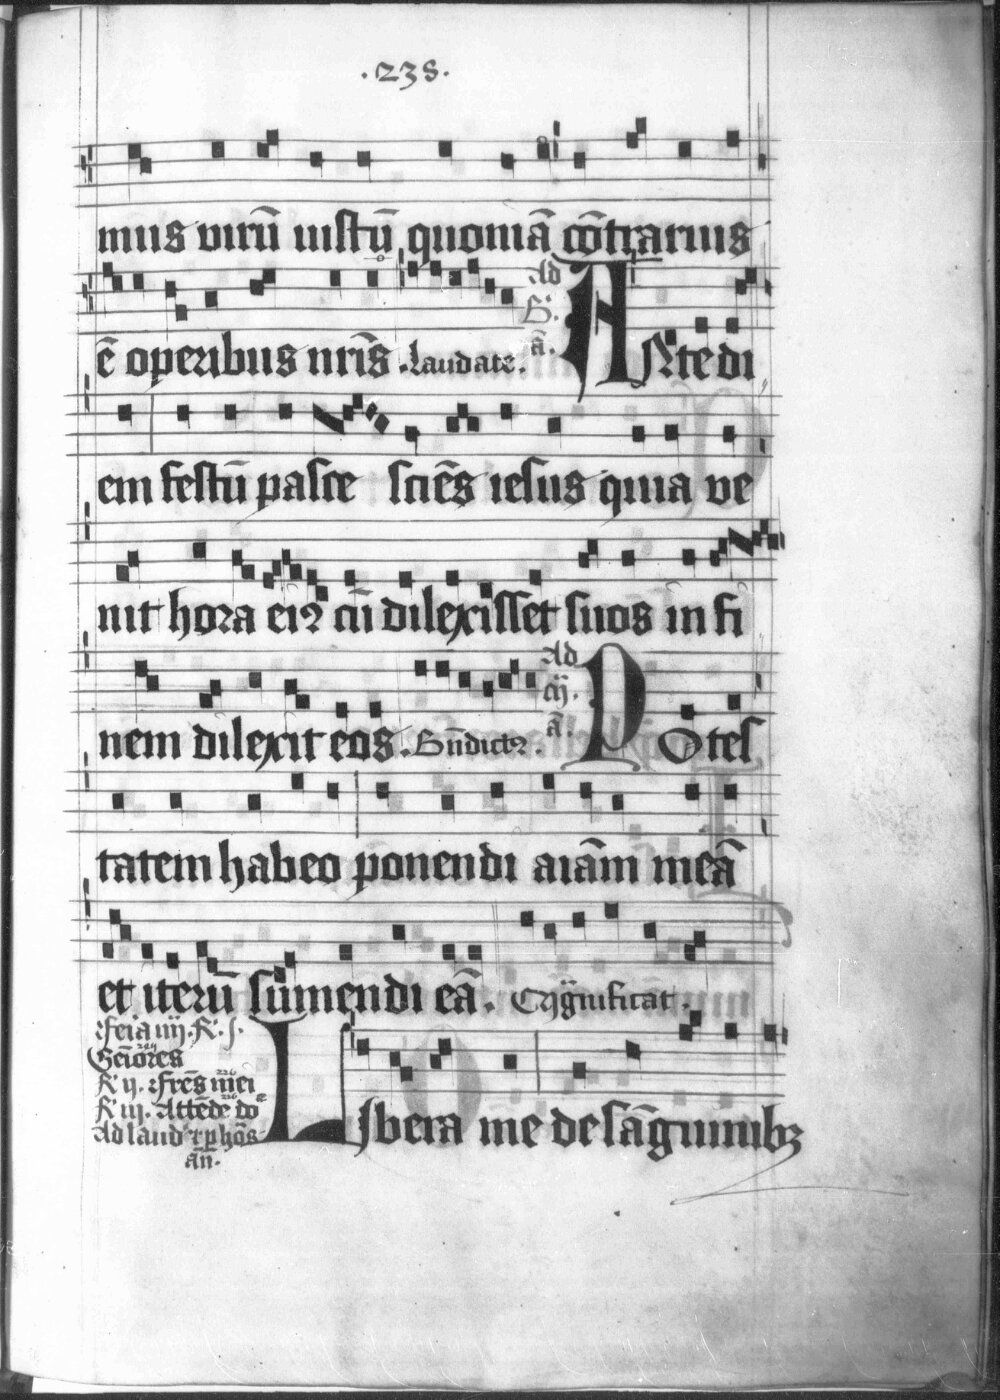 .238.
mus virū iustū quoniā cōtrarius
ē operibus nr̄is. Laudate. Ad B. ā. ANte di
em festū pasce sciēs iesus quia ve
nit hora eiꝰ cū dilexisset suos in fi
nem dilexit eos. Bn̄dictꝰ. Ad ā. POtes
tatem habeo ponendi aīam meā
et iterū sumendi eā.
Feria iiij. R. j.
Seniōres
R ij. Frēs mei
R iij. Attēde dō
Ad laud
añ.
LIbera me de sāguinibꝫ